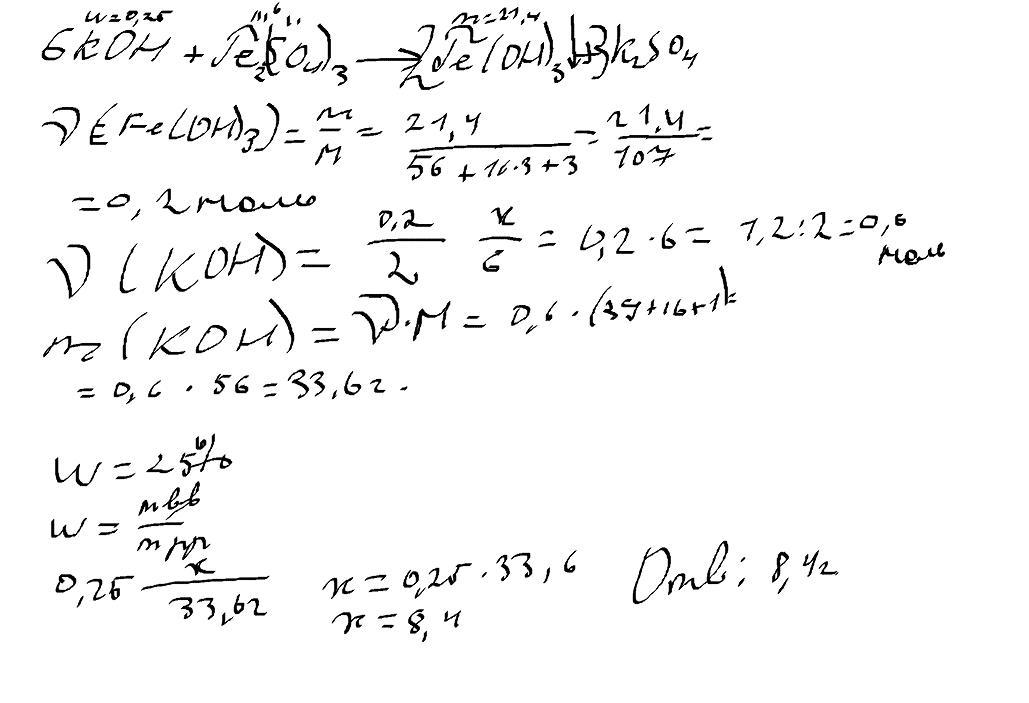 w=0,25 m=21,4
6KOH + Fe2(SO4)3 → 2Fe(OH)3↓+3K2SO4
ν(Fe(OH)3)= m/M = 21,4/(56+16·3+3) = 21,4/107 =
=0,2 моль
ν(KOH)= 0,2/2 x/6 = 0,2·6= 1,2:2=0,6 моль
m(KOH)=ν·M= 0,6·(39+16+1)=
=0,6·56=33,6г.
w=25%
w= mвв/mрр
0,25 x/33,6г x=0,25·33,6 Отв: 8,4г
x=8,4